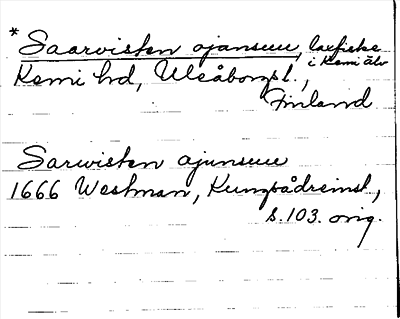 * Saarvisten ojansuu, laxfiske
i Kemi älv
Kemi hd, Uleåborgsl.,
Finland
Sarwisten ajunsuu
1666 Westman, Kungsådreinst,
s. 103. orig.